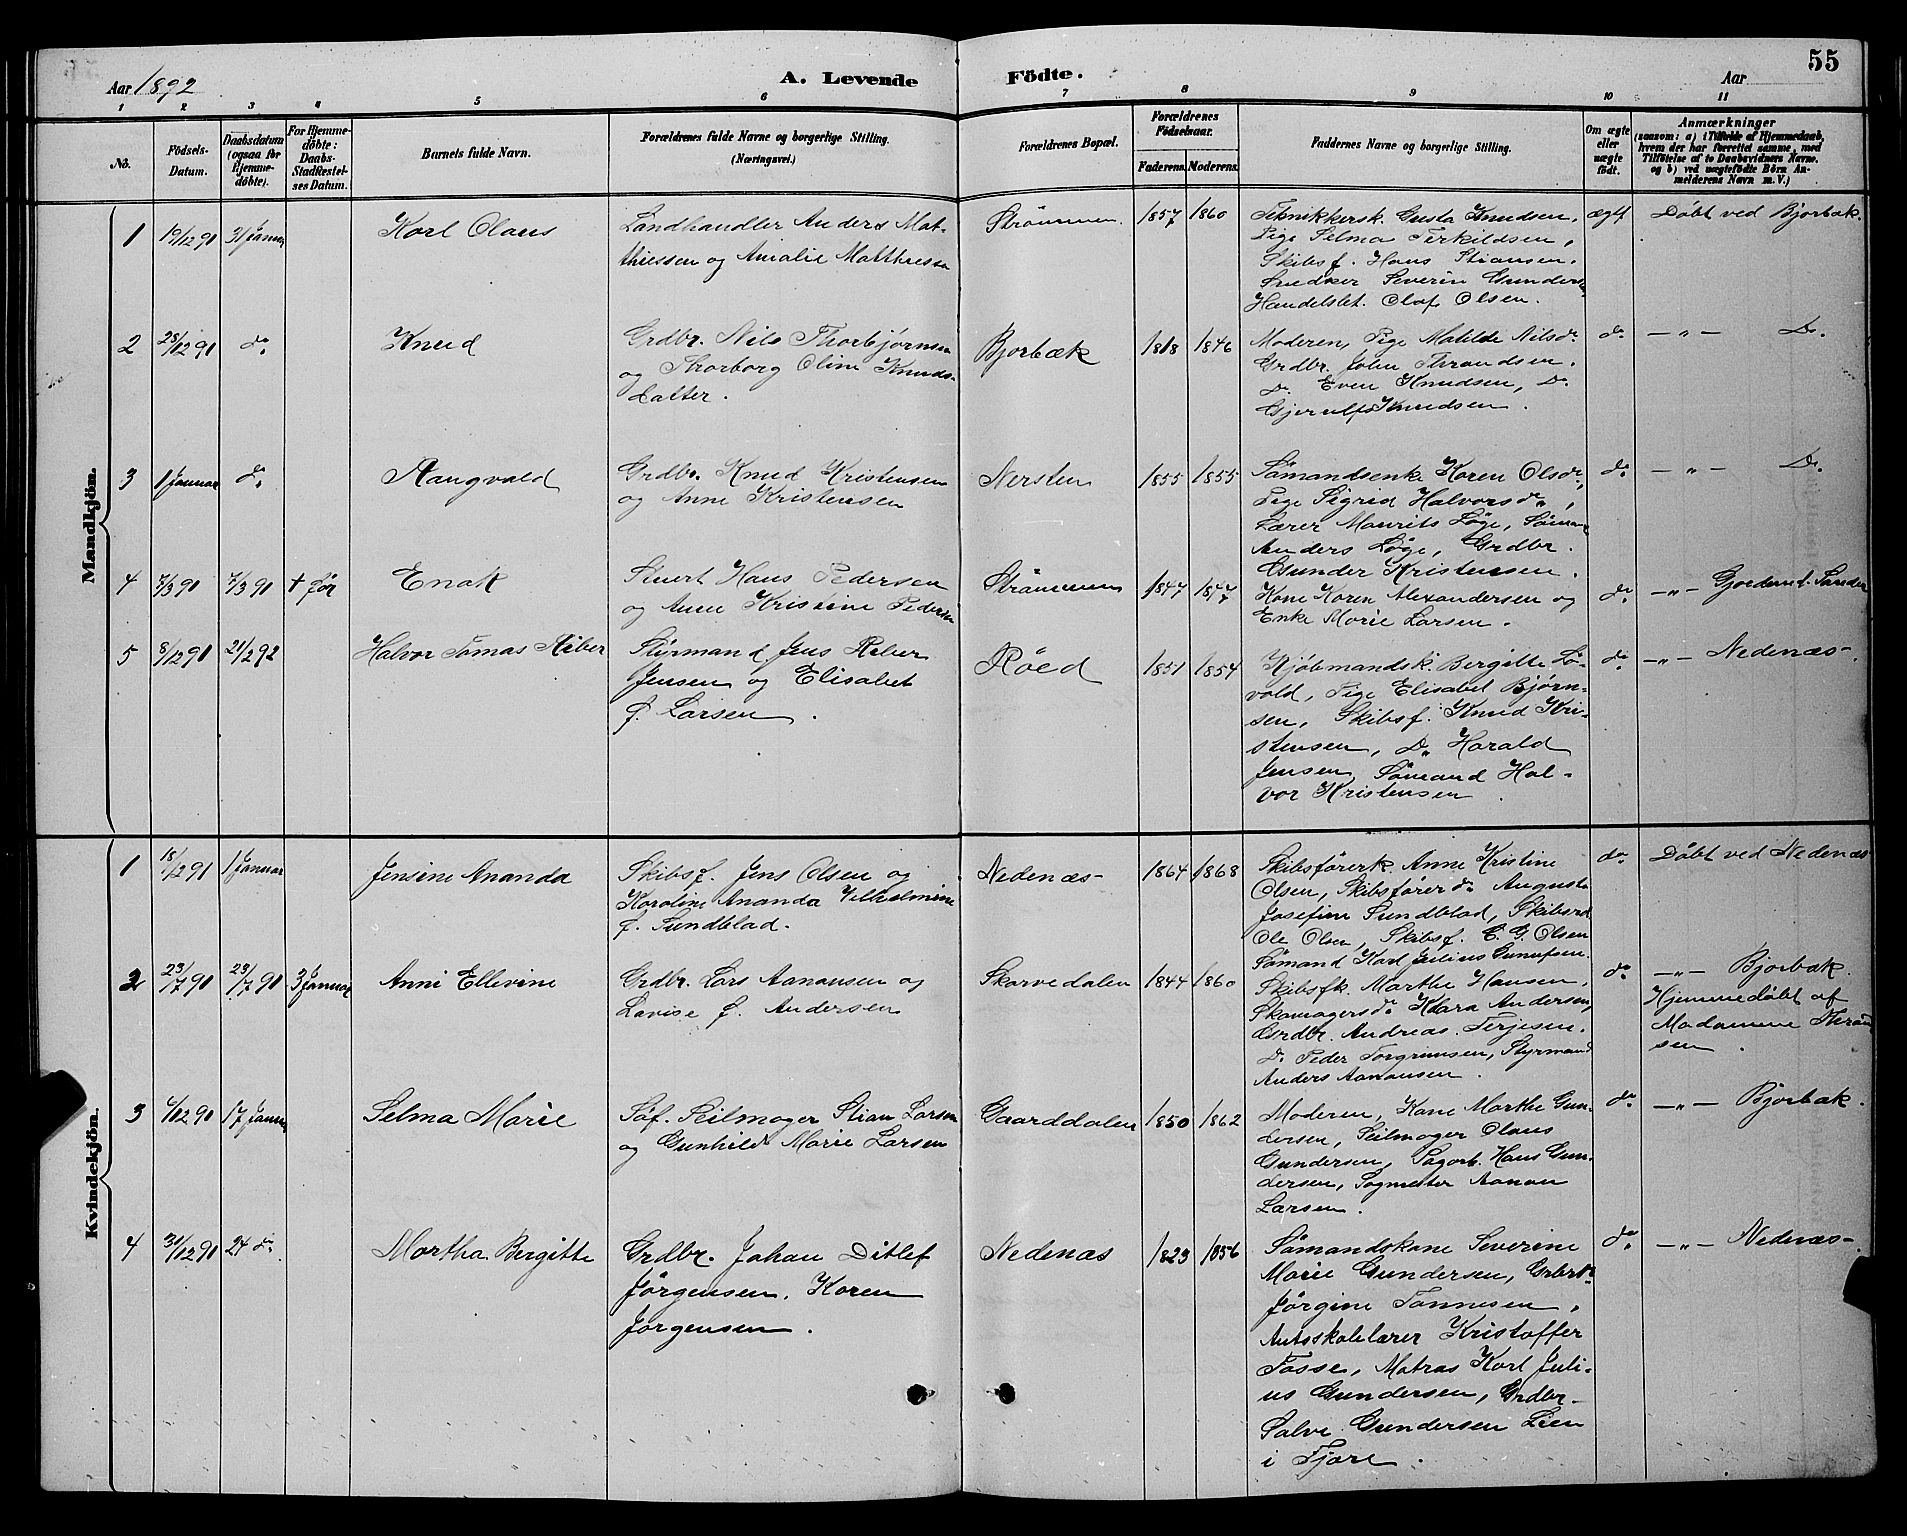 55
Aar 1892
A. Levende
Födte.
Aar
1 2 3 4 5 6 7 8 9 10 11
No.
Födsels-
Datum.
Daabsdatum
(ogsaa for
Hjemme-
döbte).
For Hjemme-
döbte:
Daabs-
Stadfestel-
ses Datum.
Barnets fulde Navn.
Forældrenes fulde Navne og borgerlige Stilling.
(Næringsvei.)
Forældrenes Bopæl.
Forældrenes
Födselsaar.
Faderens. Moderens.
Faddernes Navne og borgerlige Stilling.
Om ægte
eller
uægte
født.
Anmærkninger
(saasom: a) i Tilfælde af Hjemmedaab,
hvem der har forrettet samme, med
Tilføielse af to Daabsvidners Navne.
og b) ved uægtefödte Börn An-
melderens Navn m. V.)
Mandkjön.
1 19/12 91 31 Januar Karl Olaus
Landhandler Anders Mat-
thiessen og Amalie Matthiessen
Strömmen. 1857 1860
Teknikkersk. Gusta Knudsen,
Pige Selma Terkildsen,
Skibsf. Hans Stiansen.
Snedker Severin Gundersen
Handelsbet. Olaf Olsen.
ægt Døbt ved Bjorbæk.
2 28/12 91 do. Knud
Grdbr. Nils Thorbjørnsen
og Thorborg Oline Knuds-
datter.
Bjorbæk 1818 1846
Moderen, Pige Matilde Nilsdr.
Grdbr. John Thrandsen.
Do. Even Knudsen, Do.
Gjerulf Knudsen.
do. — „ — Do.
3 1 Januar do. Aangvald
Grdbr. Knud Kristensen
og Anne Kristensen
Nersten 1855 1855
Sömandsenke Karen Olsdr.,
Pige Sigrid Halvorsdr.,
Lærer Maurits Løge, Sömand
Anders Løge, Grdbr.
Gunder Kristensen.
do. — „ — Do.
4 7/3 90 7/3 90 † før Enok
Stuert Hans Pedersen
og Anne Kristine Pedersen
Strömmen 1847 1847
Kone Karen Alexandersen og
Enke Marie Larsen.
do. — „ — Gjordemd. Sanden
5 8/12 91 21/2 92 Halvor Tomas Reiber
Styrmand Jens Reber
Jensen og Elisabet
f. Larsen.
Röed 1851 1854
Kjøbmandsk. Bergitte Lø-
vold, Pige Elisabet Bjørn-
sen, Skibsf. Knud Kri-
stensen, Do. Harald
Jensen, Sömand Hal-
vor Kristensen.
do. — „ — Nedenæs.
Kvindekjön.
1 18/12 91 1 Januar Jensine Ananda
Skibsf. Jens Olsen og
Karoline Ananda Vilhelmine
f. Sundblad.
Nedenæs 1864 1868
Skibsförerk. Anne Kristine
Olsen, Skibsförer dr. Augusta
Josefine Sundblad, Skibsrd
Ole Olsen, Skibsf. C. G. Olsen
Sömand Karl Julius Gunufsen.
do. Døbt ved Nedenæs
2 23/7 90 23/7 90 3 Januar Anni Ellevine
Grdbr. Lars Aanansen og
Lavise f. Andersen
Skarvedalen 1844 1860
Skibsfk. Marthe Hansen,
Skomagersdr. Klara Andersen,
Grdbr. Andreas Terjesen.
Do. Peder Torgrimsen, Styrmand
Anders Aanansen.
do. — „ — Bjorbæk.
Hjemmedøbt af
Madamme Thran
sen.
3 4/12 90 17 Januar Selma Marie
Söf. Seilmager Stian Larsen
og Gunhild Marie Larsen
Gaarddalen 1850 1862
Moderen, Kone Marthe Gun-
dersen, Seilmager Olaus
Gundersen, Sagarb. Hans Gun-
dersen, Sagmester Aanon
Larsen.
do. — „ — Bjorbæk.
4 31/12 90 24 do. Martha Bergitte
Grdbr. Johan Ditlef
Jörgensen. Karen
Jorgensen.
Nedenæs 1823 1856
Sömandskone Severine
Marie Gundersen, Grbrdr.
Jörgine Tønnesen,
Amtsskolelærer Kristoffer
Tosse, Matros Karl Juli-
us Gundersen, Grdbr.
Salve Gundersen Lien
i Fjære.
do. — „ — Nedenæs.